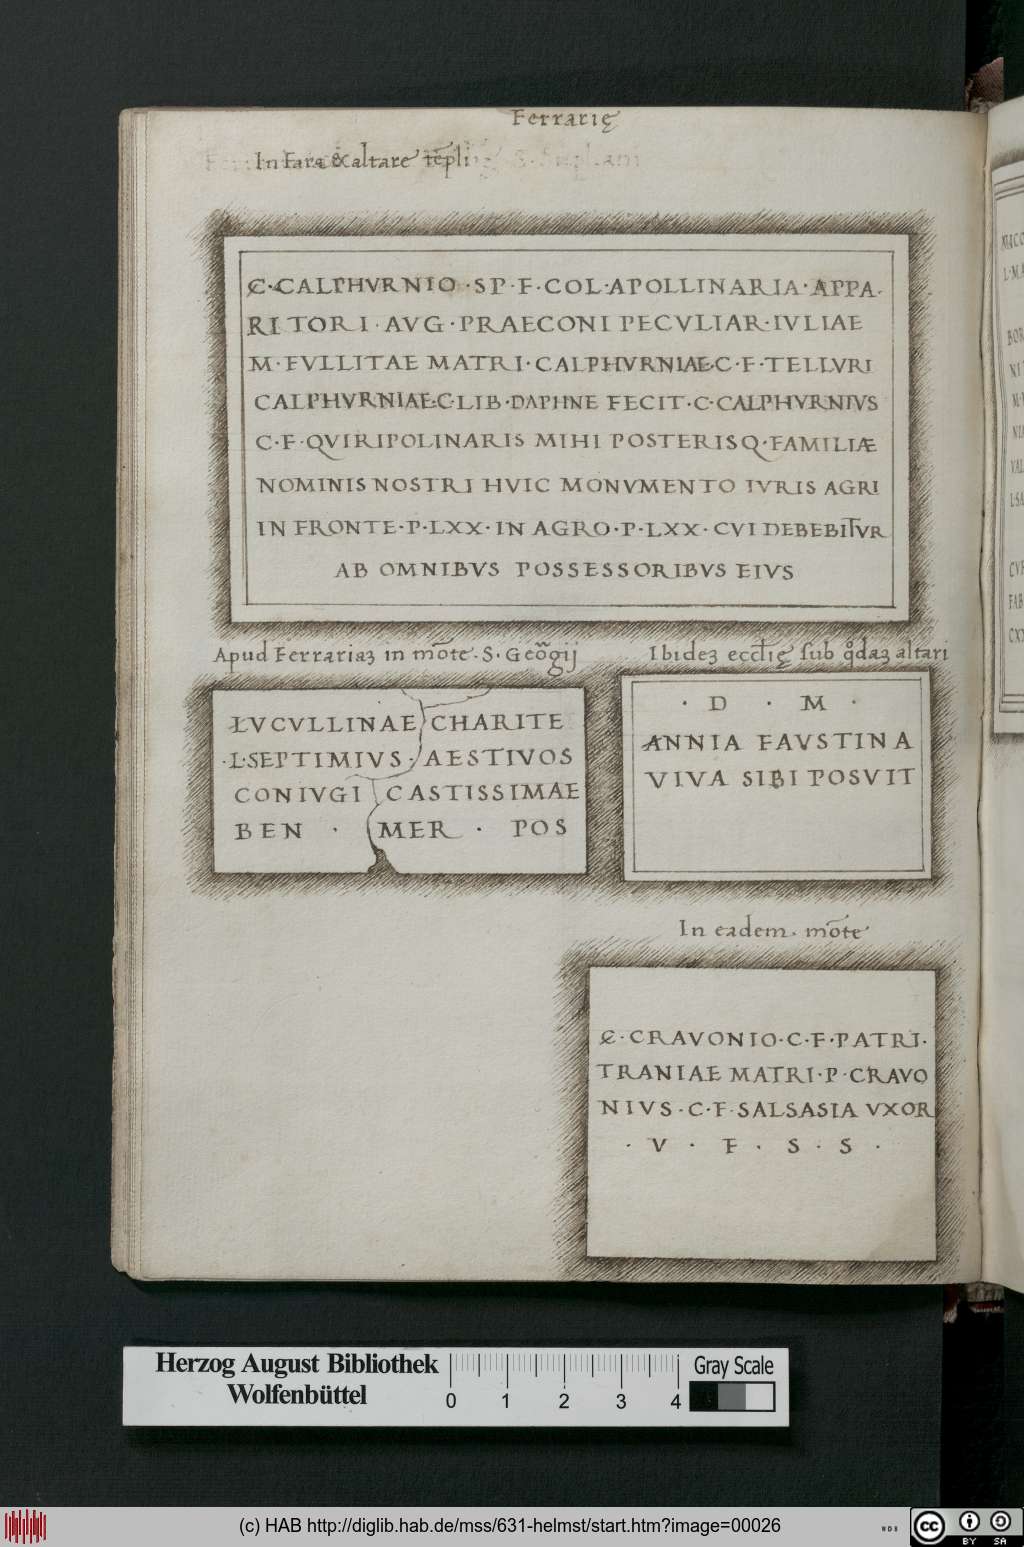 Ferrarię
In fara & altare tēpli
C·CALPHVRNIO·SP·F·COL·APOLLINARIA·APPA·
RITORI·AVG·PRAECONI PECVLIAR·IVLIAE
M·FVLLITAE MATRI·CALPHVRNIAE·C·F·TELLVRI
CALPHVRNIAE·C·LIB·DAPHNE FECIT·C·CALPHVRNIVS
C·F·QVIRIPOLINARIS MIHI POSTERISQ·FAMILIÆ
NOMINIS NOSTRI HVIC MONVMENTO IVRIS AGRI
IN FRONTE·P·LXX·IN AGRO·P·LXX·CVI DEBEBITVR
AB OMNIBVS POSSESSORIBVS EIVS
Apud Ferrariaꝫ in mōte·S·Geōgij
LVCVLLINAE CHARITE
·L·SEPTIMIVS·AESTIVOS
CONIVGI CASTISSIMAE
BEN · MER · POS
Ibideꝫ eccłię sub qͦdaꝫ altari
· D · M ·
ANNIA FAVSTINA
VIVA SIBI POSVIT
In eadem· mōte
C·CRAVONIO·C·F·PATRI·
TRANIAE MATRI·P·CRAVO
NIVS·C·F·SALSASIA VXOR
· V · F · S · S ·
Herzog August Bibliothek
Wolfenbüttel
0 1 2 3 4
Gray Scale
(c) HAB http://diglib.hab.de/mss/631-helmst/start.htm?image=00026
WDB
cc
BY SA